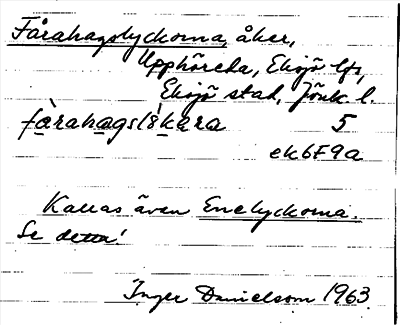 Fårahagslyckorna, åker,
Upphörda, Eksjö lfs,
Eksjö stad, Jönk. l.
5
ek6F9a
Kallas även Enelyckorna.
Se detta!
Inger Danielsson 1963